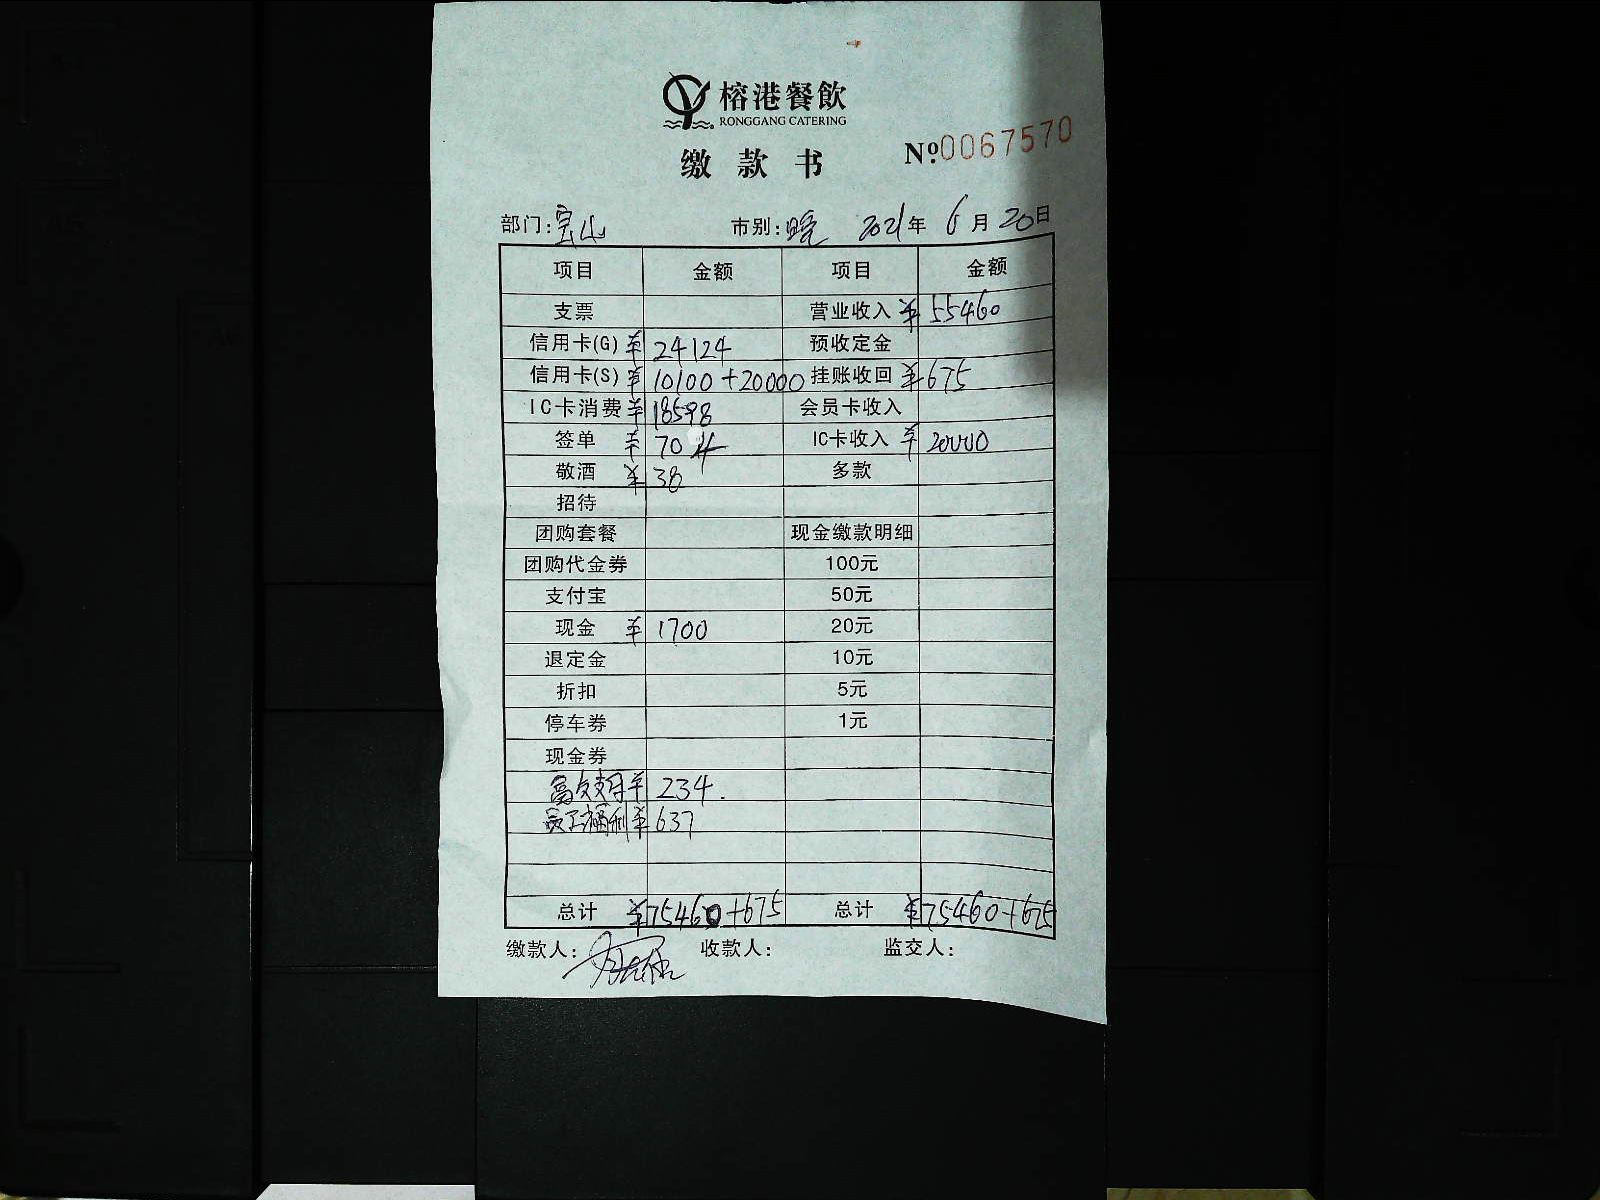 榕港餐飲
RONGGANG CATERING
缴款书 №0067570
部门:宝山 市别:晚 2021年6月20日
项目 金额 项目 金额
支票 营业收入 ¥55460
信用卡(G) ¥24124 预收定金
信用卡(S) ¥10100+20000 挂账收回 ¥675
IC卡消费 ¥18598 会员卡收入
签单 ¥704 IC卡收入 ¥20000
敬酒 ¥38 多款
招待
团购套餐 现金缴款明细
团购代金券 100元
支付宝 50元
现金 ¥1700 20元
退定金 10元
折扣 5元
停车券 1元
现金券
支付 ¥234.
员工福利 ¥637
总计 ¥75460+675 总计 ¥75460+675
缴款人: 收款人: 监交人: